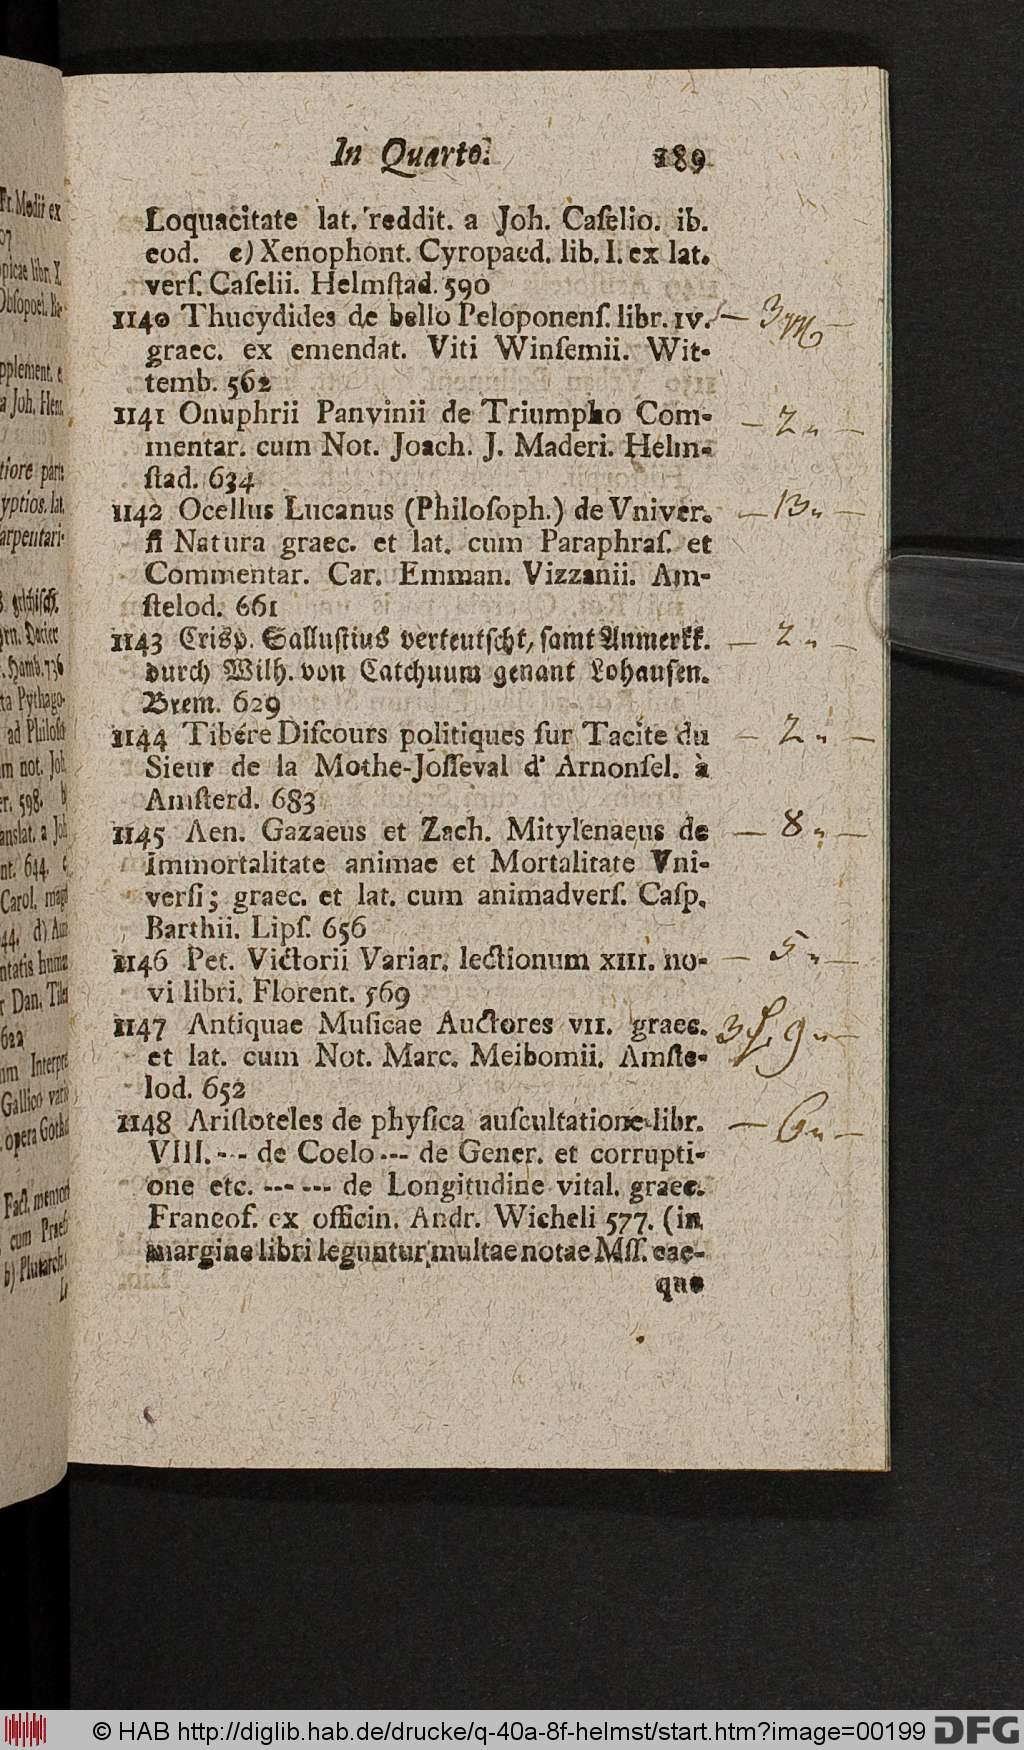 In Quarto. 189
Loquacitate lat. reddit. a Joh. Caſelio. ib.
eod. e) Xenophont. Cyropaed. lib. I. ex lat.
verſ. Caſelii. Helmſtad. 590
1140 Thucydides de bello Peloponenſ. libr. IV. — 3 —
graec. ex emendat. Viti Winſemii. Wit-
temb. 562
1141 Onuphrii Panvinii de Triumpho Com- — 2 „ —
mentar. cum Not. Joach. J. Maderi. Helm-
ſtad. 634
1142 Ocellus Lucanus (Philoſoph.) de Vniver- — 13 „ —
ſi Natura graec. et lat. cum Paraphraſ. et
Commentar. Car. Emman. Vizzanii. Am-
ſtelod. 661
1143 Crisp. Salluſtius verteutſcht, ſamt Anmerkk. — 2 „ —
durch Wilh. von Catchuum genant Lohauſen.
Brem. 629
1144 Tibére Diſcours politiques ſur Tacite du — 2 „ —
Sieur de la Mothe-Joſſeval d' Arnonſel. à
Amſterd. 683
1145 Aen. Gazaeus et Zach. Mitylenaeus de — 8 „ —
Immortalitate animae et Mortalitate Vni-
verſi; graec. et lat. cum animadverſ. Caſp.
Barthii. Lipſ. 656
1146 Pet. Victorii Variar. lectionum XIII. no- — 5 „ —
vi libri. Florent. 569
1147 Antiquae Muſicae Auctores VII. graec. 3 9 „ —
et lat. cum Not. Marc. Meibomii. Amſte-
lod. 652
1148 Ariſtoteles de phyſica auſcultatione libr. — 6 „ —
VIII. - - de Coelo --- de Gener. et corrupti-
one etc. --- --- de Longitudine vital. graec.
Francof. ex officin. Andr. Wicheli 577. (in
margine libri leguntur multae notae Mſſ. eae-
que
© HAB http://diglib.hab.de/drucke/q-40a-8f-helmst/start.htm?image=00199 DFG